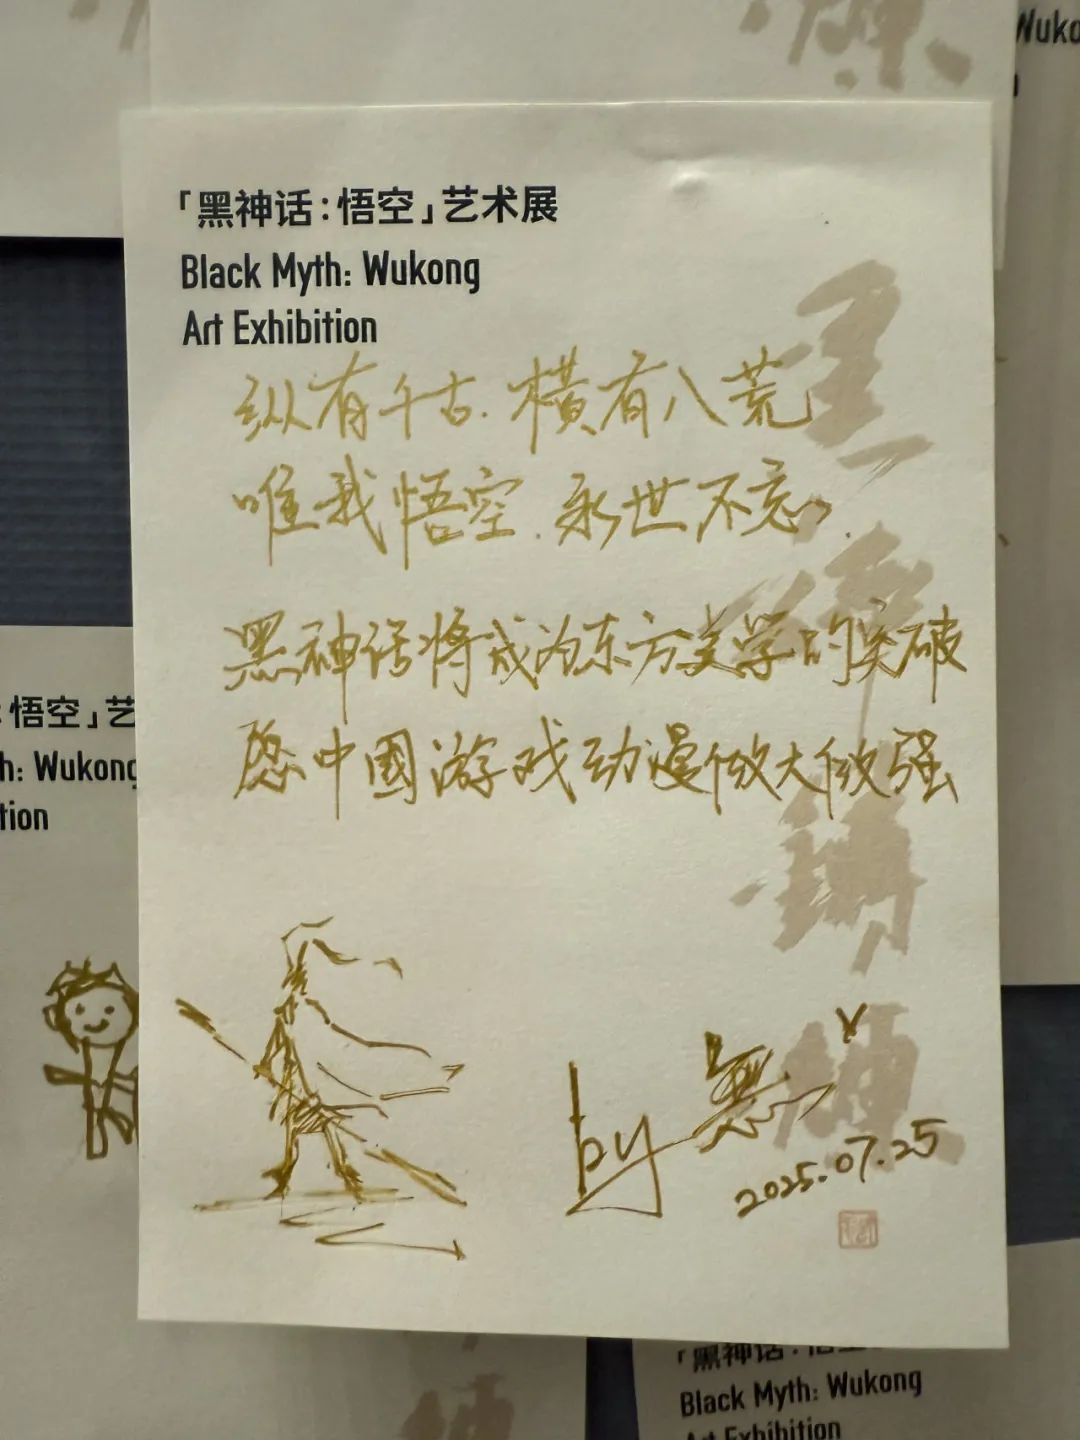 「黑神话:悟空」艺术展
Black Myth: Wukong
Art Exhibition
纵有千古.横有八荒
唯我悟空.永世不忘.
黑神话将成为东方美学的突破
愿中國游戏动漫做大做强
by 無
2025.07.25
Wuko
:悟空」艺
h: Wukong
tion
「黑神话:悟空
Black Myth: Wukong
Art Exhibition